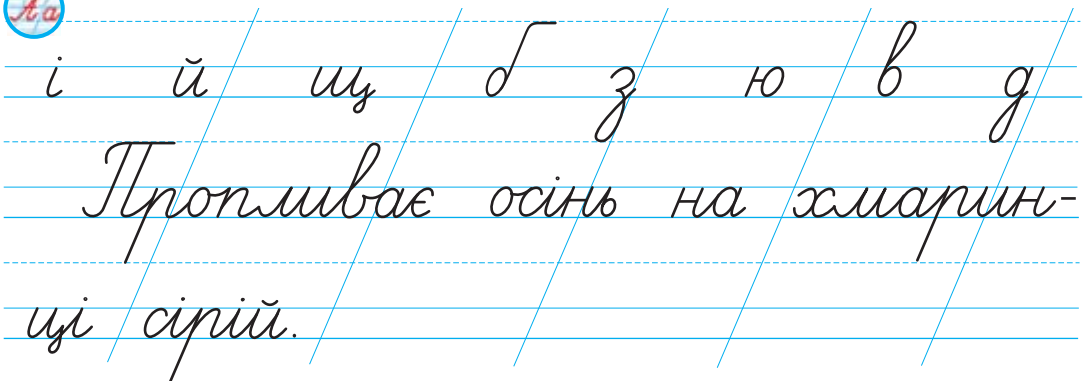 Аа
і й щ б з ю в д
Пропливає осінь на хмарин-
ці сірій.